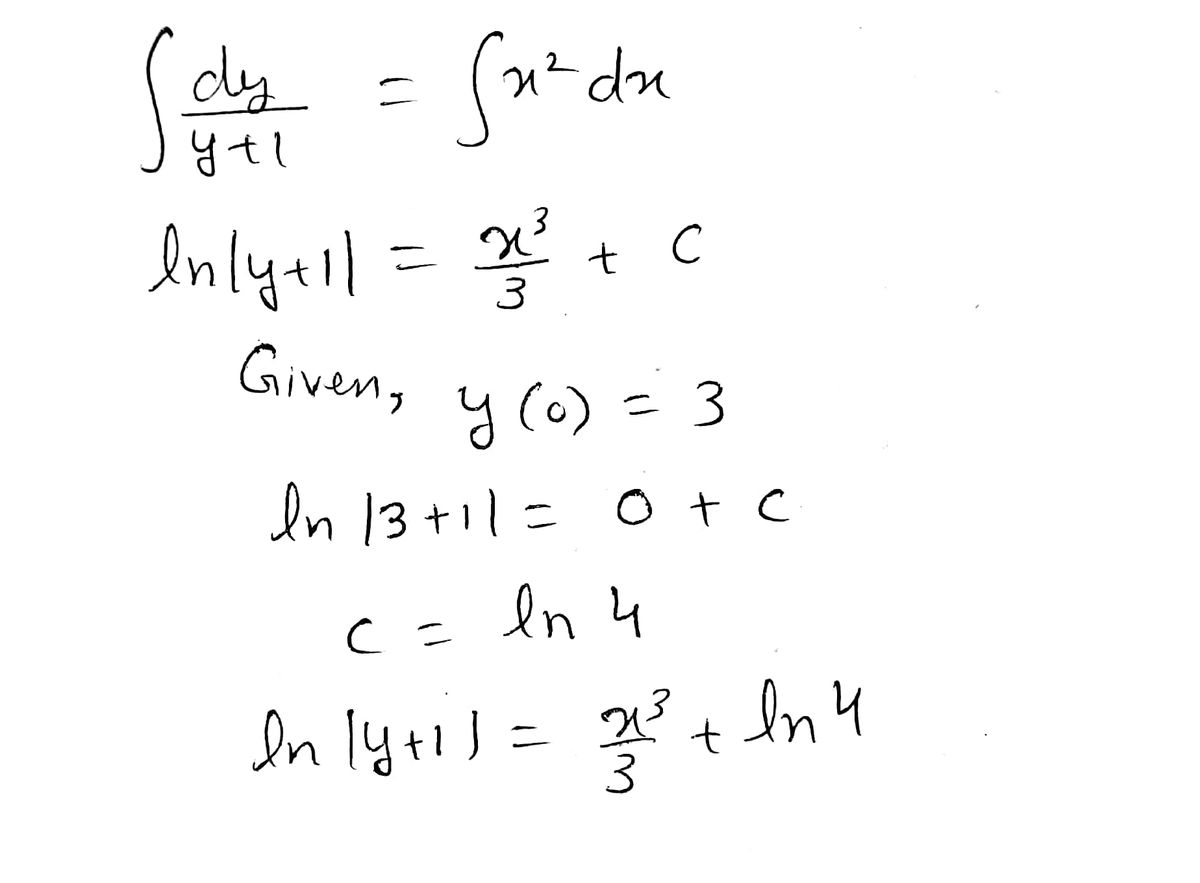 ∫ dy/(y+1) = ∫ x² dx
ln|y+1| = x³/3 + C
Given, y(0) = 3
ln |3+1| = 0 + C
C = ln 4
ln |y+1| = x³/3 + ln 4